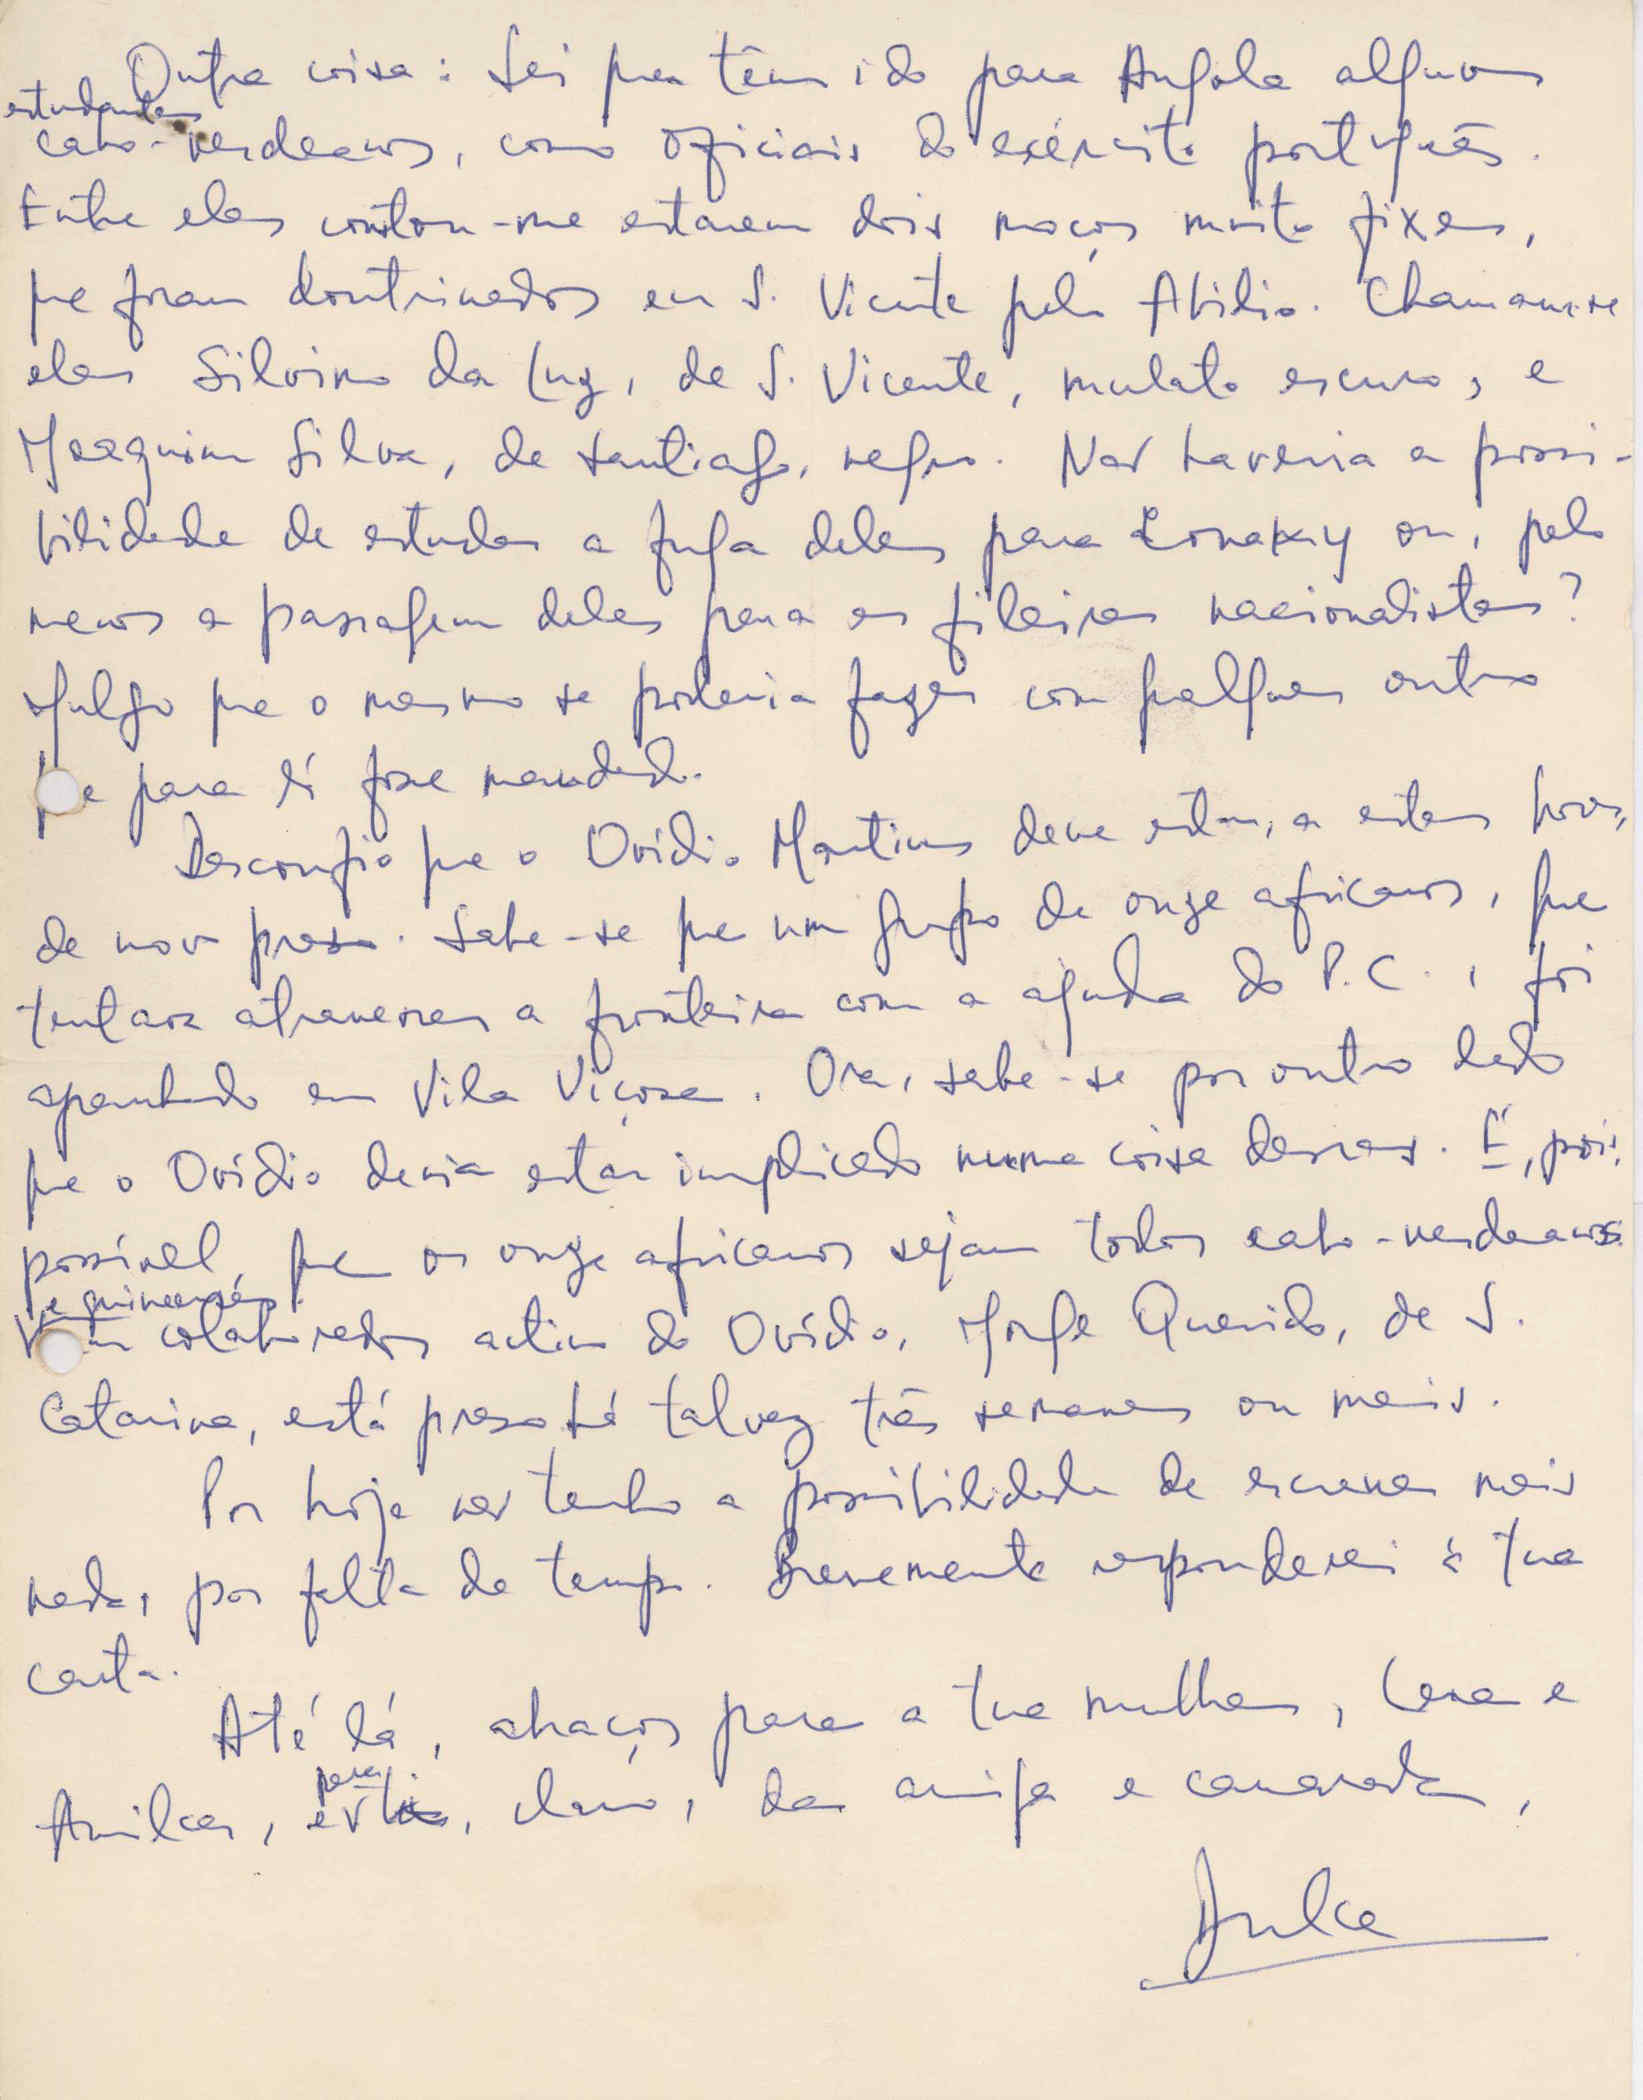 Outra coisa: Sei que têm ido para Angola alguns
estudantes
cabo-verdeanos, como oficiais do exército português.
Entre eles contou-me estarem dois moços muito fixes,
que foram doutrinados em S. Vicente pelo Abílio. Chamam-se
eles Silvino da Luz, de S. Vicente, mulato escuro, e
Joaquim Silva, de Santiago, negro. Não haveria a possi-
bilidade de estudar a fuga deles para Conakry ou, pelo
menos a passagem deles para as fileiras nacionalistas?
Julgo que o mesmo se poderia fazer com qualquer outro
que para lá fosse mandado.
Desconfio que o Ovídio Martins deve estar, a estas horas,
de novo preso. Sabe-se que um grupo de onze africanos, que
tentava atravessar a fronteira com a ajuda do P.C., foi
apanhado em Vila Viçosa. Ora, sabe-se por outro lado
que o Ovídio devia estar implicado numa coisa dessas. É, pois,
possível, que os onze africanos sejam todos cabo-verdeanos
e guineenses.
Um colaborador activo do Ovídio, Jorge Querido, de S.
Catarina, está preso há talvez três semanas ou mais.
Por hoje não tenho a possibilidade de escrever mais
nada, por falta de tempo. Brevemente responderei à tua
carta.
Até lá, abraços para a tua mulher, Lena e
para
Amilcar, e ti, claro, da amiga e camarada,
Dulce